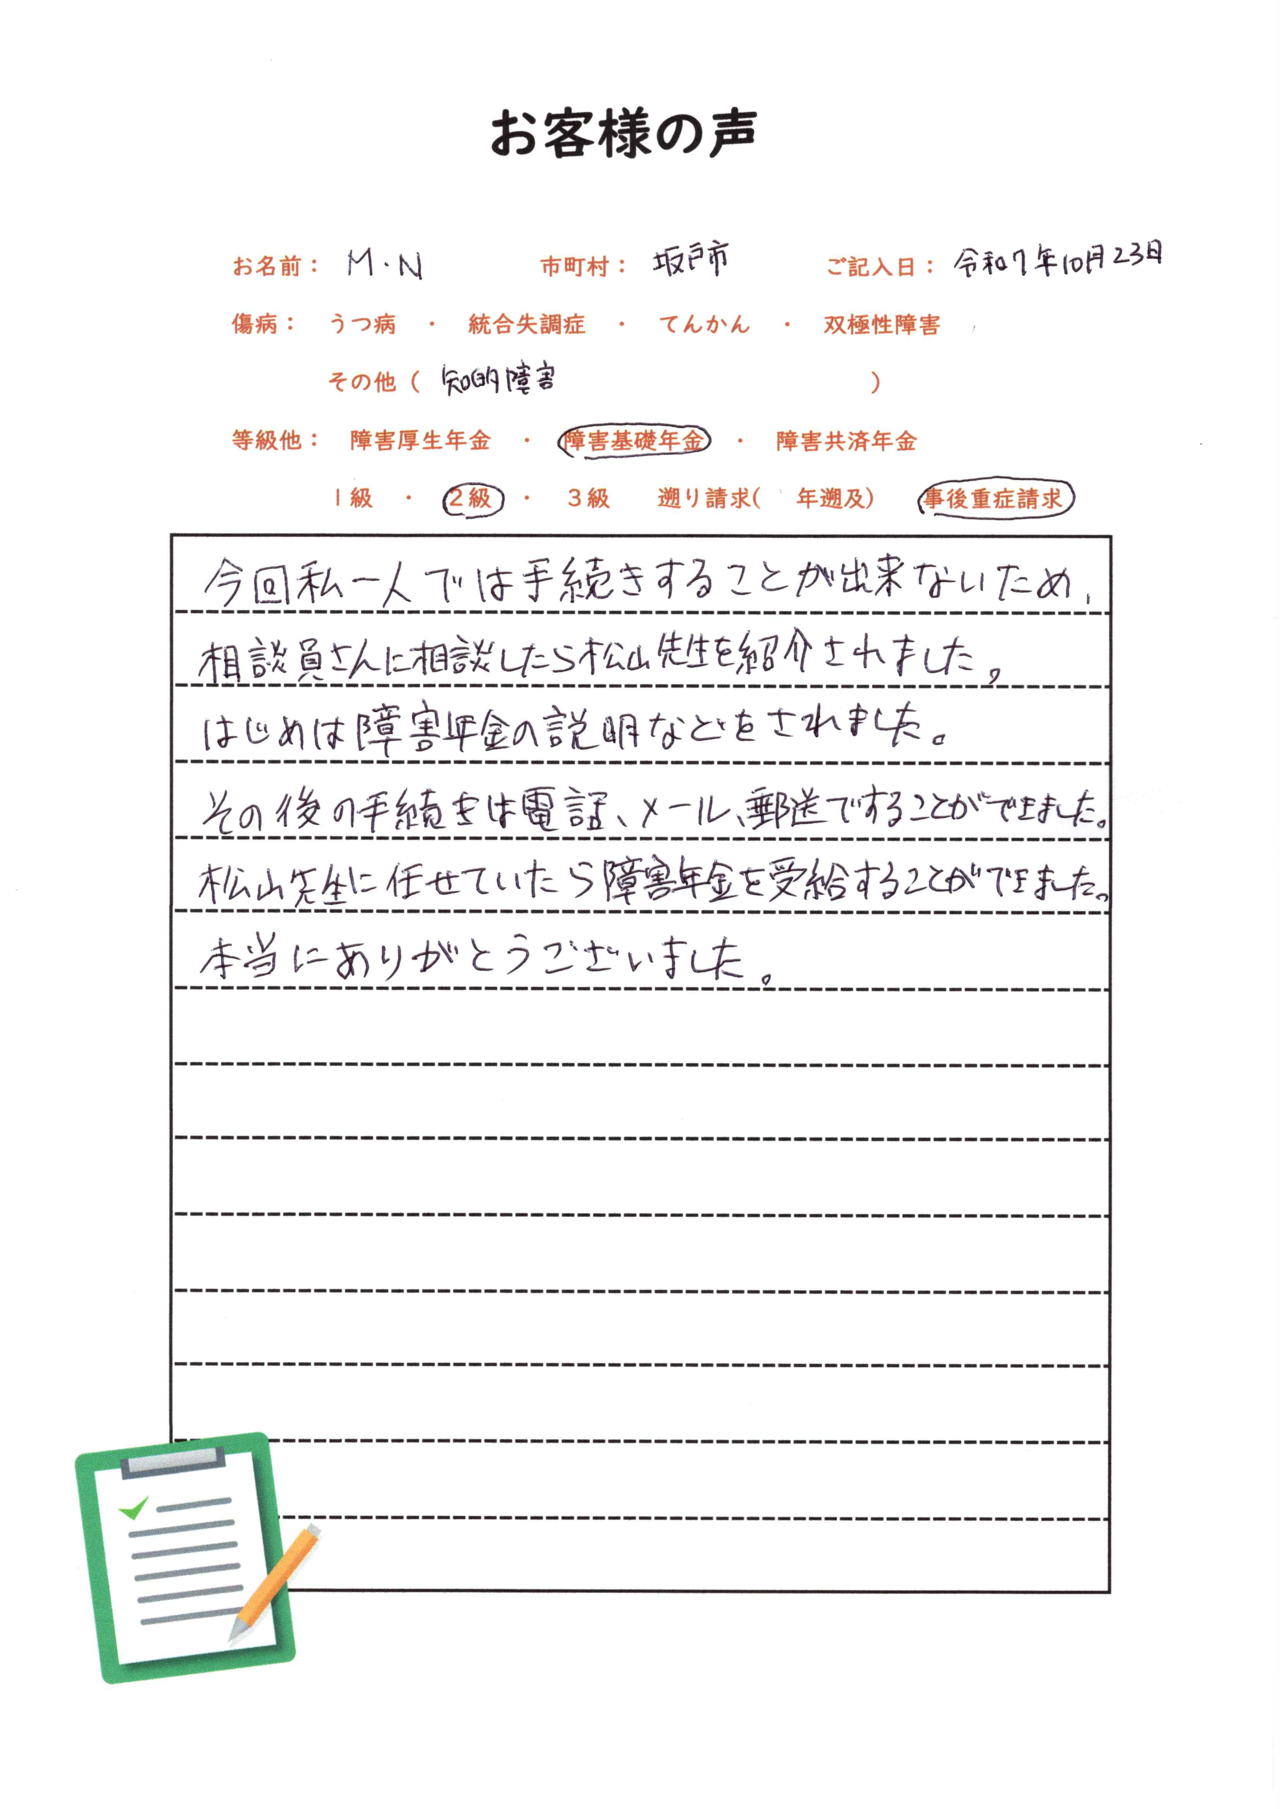 お客様の声
お名前： M・N 市町村： 坂戸市 ご記入日： 令和7年10月23日
傷病： うつ病 ・ 統合失調症 ・ てんかん ・ 双極性障害
その他（ 知的障害 ）
等級他： 障害厚生年金 ・ 障害基礎年金 ・ 障害共済年金
1級 ・ 2級 ・ 3級 遡り請求( 年遡及) 事後重症請求
今回私一人では手続きすることが出来ないため、
相談員さんに相談したら松山先生を紹介されました。
はじめは障害年金の説明などをされました。
その後の手続きは電話、メール、郵送ですることができました。
松山先生に任せていたら障害年金を受給することができました。
本当にありがとうございました。